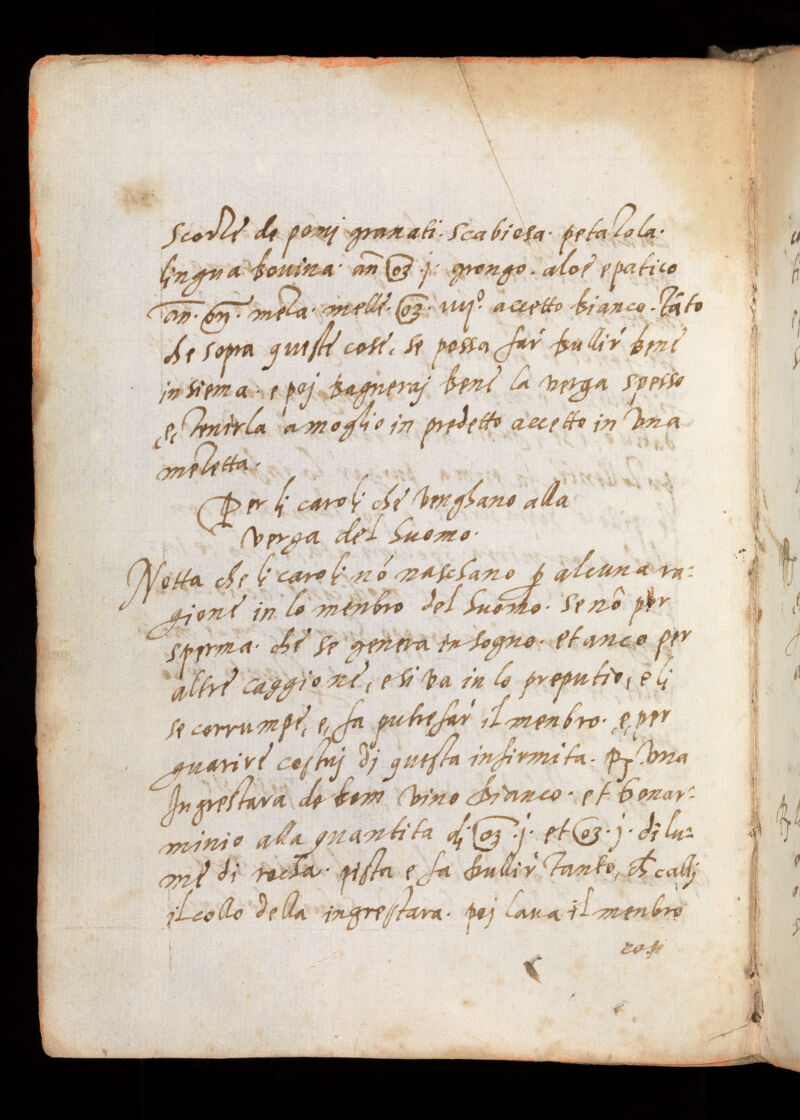 scorze de pomj granati. scabiosa. petazola.
lingua bouina. an̄ oz j. grongo. aloe epatico
an̄. meza. melle. oz. iiijº. accetto bianco. tāto
che sopra queste cose, se possa far bullir bene
insiema. e poj bagneraj bene la verga spesso
e tenirla amoglio in predetto accetto in una
mezetta.
Per li caroli che venghano alla
verga del huomo.
Notta che li caroli nō naschano p̱ alcuna ra=
gione in lo menbro del huomo. se nō per
sperma. che se genera in sogno. et anco per
altre caggione, e si va in lo preputio, e li
se corrumpe, e, fa putrefar il menbro. e, per
guarire costuj dj questa infirmita. ℞ una
Ingrestara de bom vino bianco. et bonar=
minio alla quantita dj oz. j. et oz. j. di lu=
me di roccha. pista e fa bullir tanto, ch̄ callj
il collo della ingrestara. poj laua il menbro
cosi